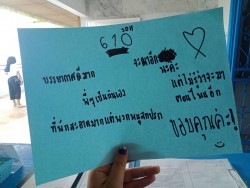 610 รอบ
บรรยากาศดีมาก
พี่ๆเป็นกันเอง
ที่พักสะอาดมากแต่พวกหนูสกปรก
จะมาอีก
นะคะ
แต่ไม่รู้ว่าจะมา
ตอนไหนอีก
ขอบคุณค่ะ!